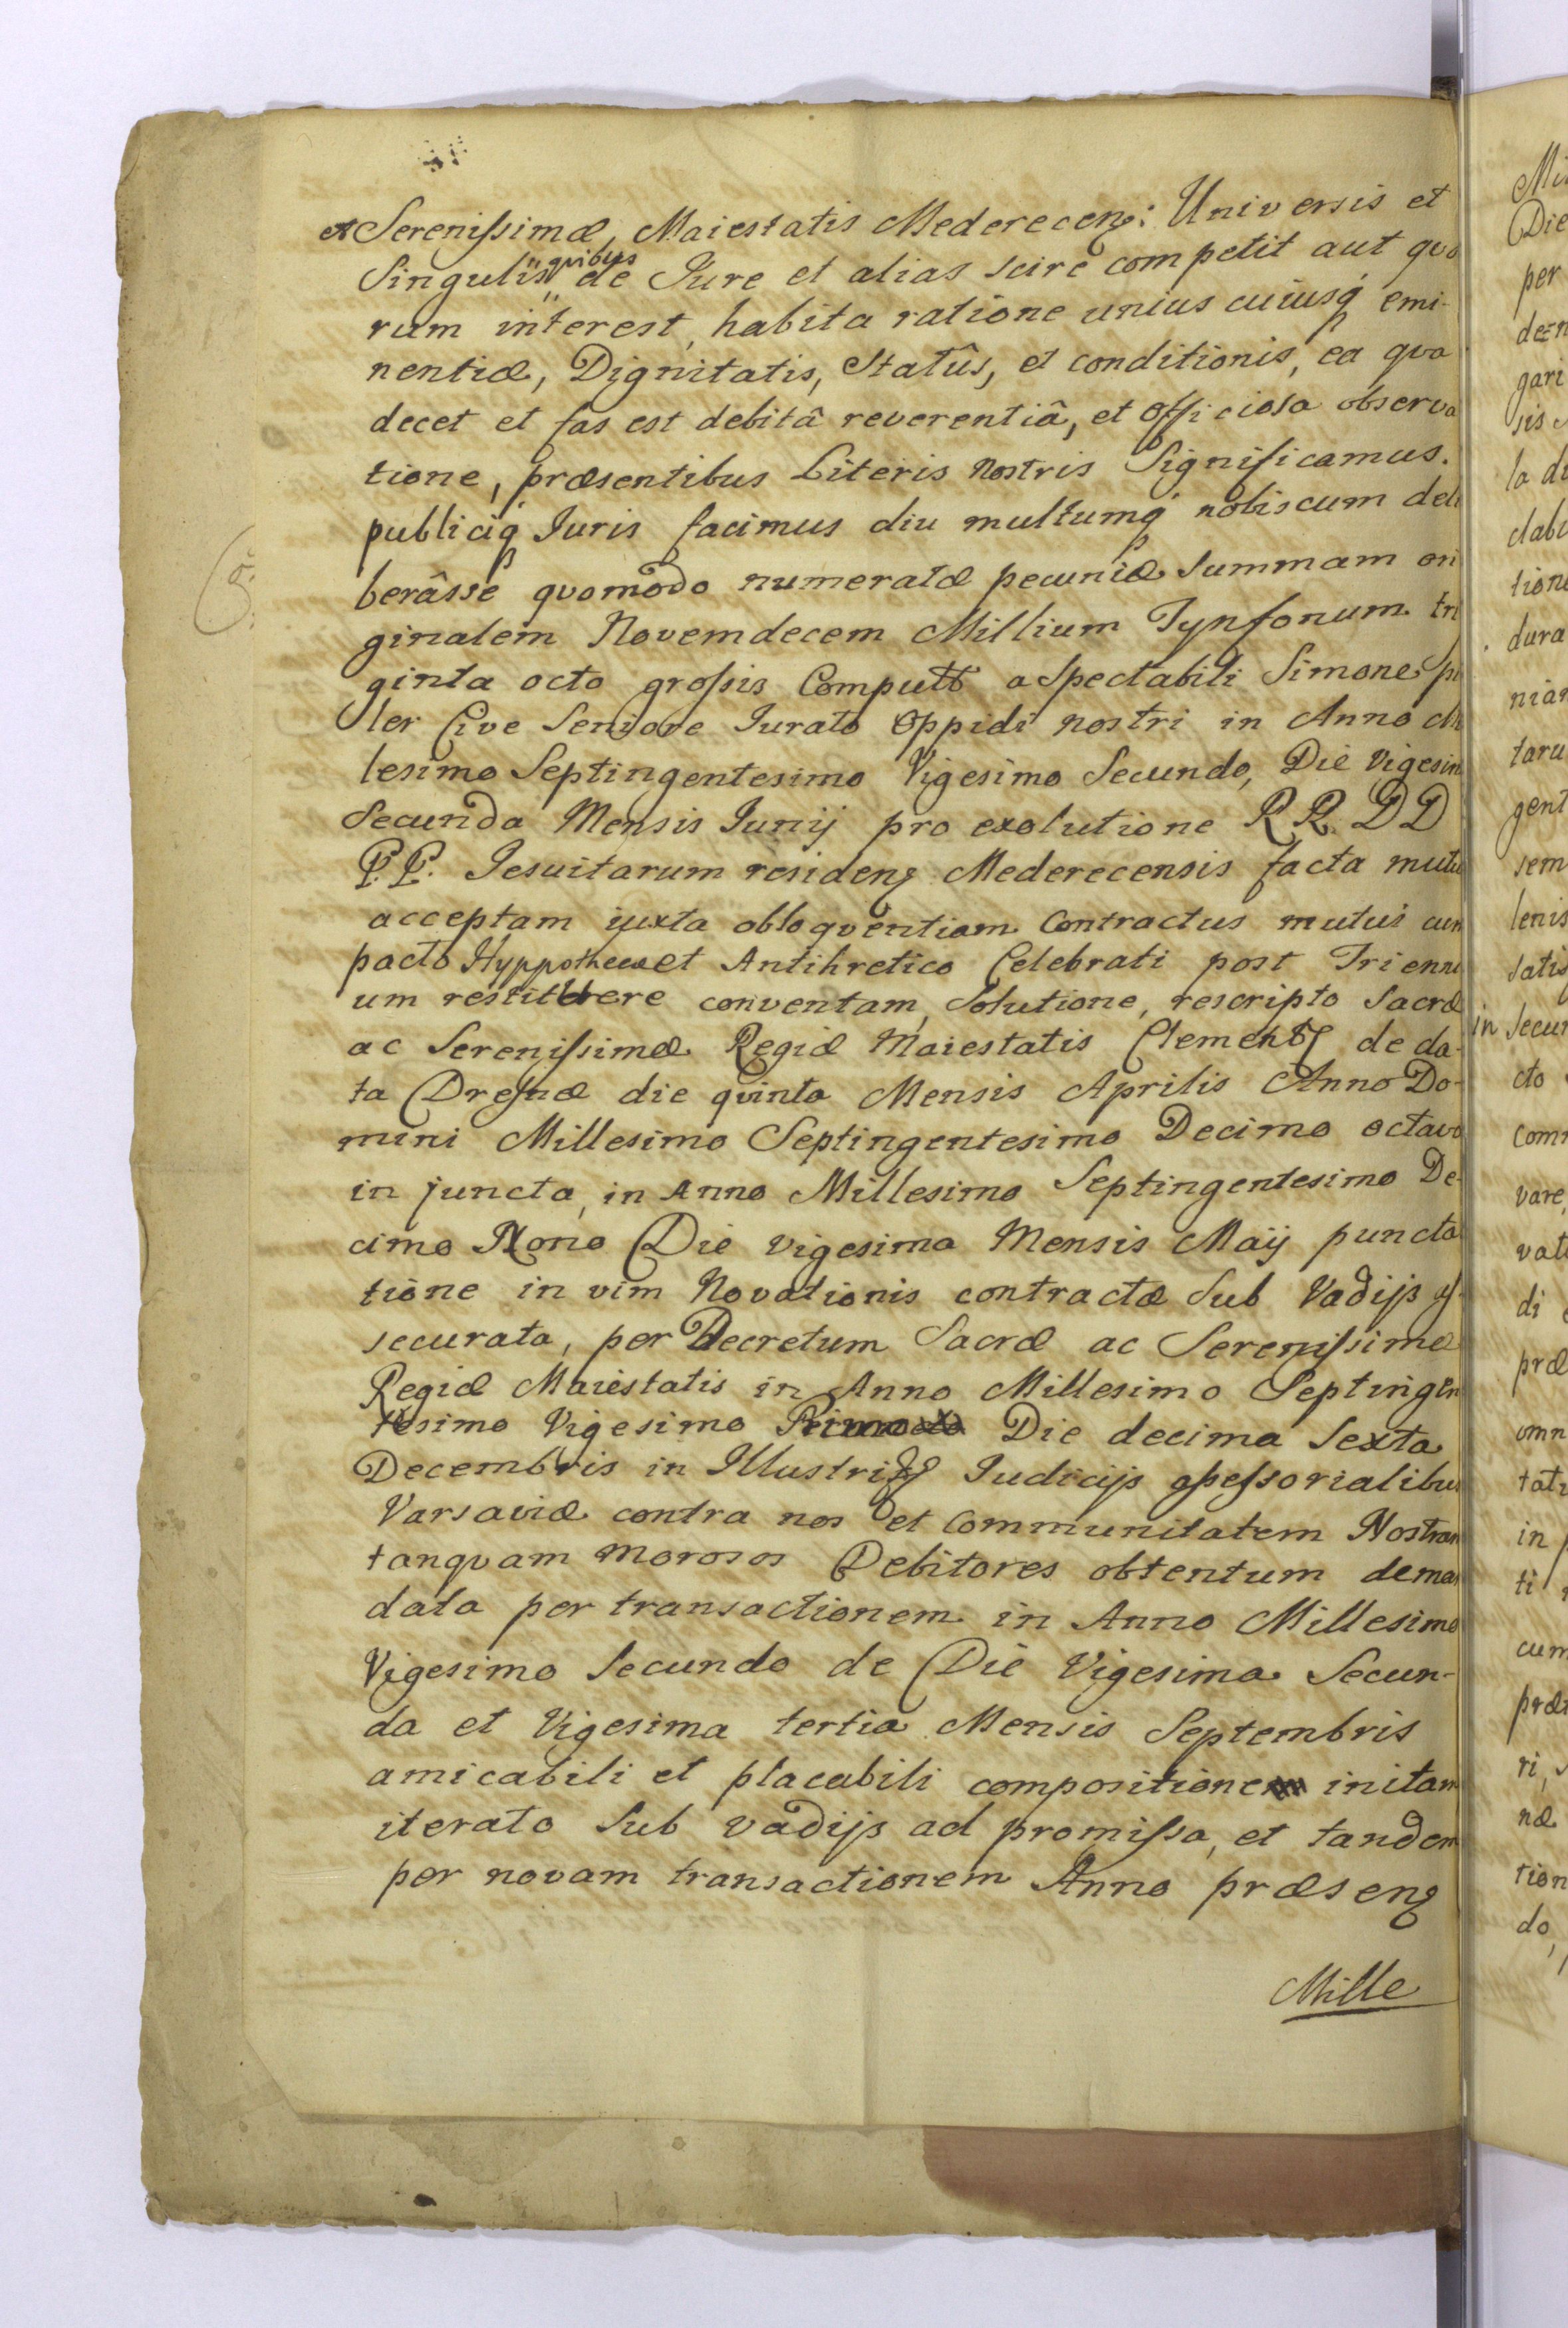 et Serenissimæ, Maiestatis Medereceng: Universis et
Singulis quibus de Iure et alias scire competit aut quo
rum interest, habita ratione unius cuiusq emi-
nentiæ, Dignitatis, Statûs, et conditionis, ea qua
decet et fas est debitâ reverentiâ, et officiosa observa
tione, præsentibus Literis Nostris Significamus.
publiciq Iuris facimus diu multumq nobiscum deli
berâsse quomodo numeratæ pecuniæ Summam ori
ginalem Novemdecem Millium Tynfonum tri
ginta octo grossis Computt a Spectabili Simone
ler Cive Seniore Iurato Oppidi nostri in Anno
lesimo Septingentesimo Vigesimo Secundo, Die Vigesim
Secunda Mensis Iunij pro exolutione R R. D D
P. P. Iesuitarum resideng Mederecensis facta mutu
acceptam iuxta obloquentiam Contractus mutui cum
pacto Hyppothecæ et Antihretico Celebrati post Trienni
um restituere conventam, Solutione, rescripto Sacræ
ac Serenissimæ Regiæ Maiestatis de da-
ta Dresnæ die quinta Mensis Aprilis Anno Do-
mini Millesimo Septingentesimo Decimo octavo
in juncta, in Anno Millesimo Septingentesimo De-
cimo Nono Die vigesima Mensis Maij puncta
tione in vim Novationis contractæ Sub Vadijs as-
securata, per Decretum Sacræ ac Serenissimæ
Regiæ Maiestatis in Anno Millesimo Septingen
tesimo Vigesimo Primo Die decima Sexta
Decembris in Iudicijs assessorialibus
Varsaviæ contra nos et Communitatem Nostram
tanquam morosos Debitores obtentum deman
data per transactionem in Anno Millesimo
Vigesimo Secundo de Die Vigesima Secun-
da et Vigesima tertia Mensis Septembris
amicabili et placabili compositione initam
iterato Sub vadijs ad promissa, et tandem
per novam transactionem Anno præseng
Mille